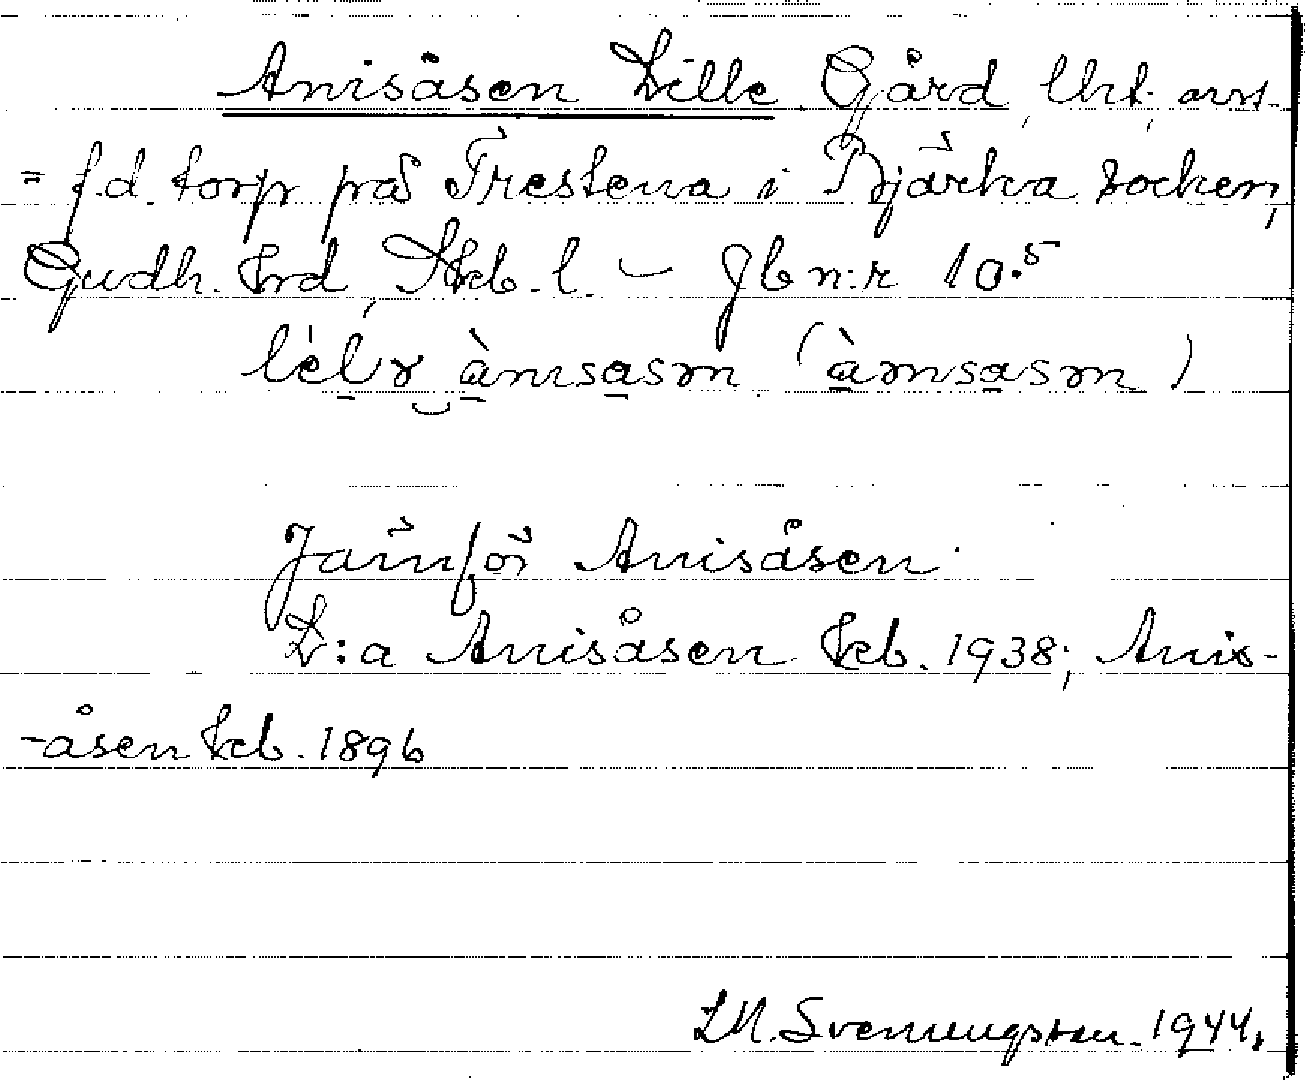 Anisåsen Lille Gård, Utf. avst.
= f.d. torp på Trestena i Bjärka socken,
Gudh. hrd, Skb. l. – Jb n:r 10.5
lèlɤ ànɪsasɤn (àmsasɤn)
Jämför Anisåsen.
L:a Anisåsen Kcb. 1938; Anis-
-åsen Kcb. 1896
LM. Svenungsson. 1944.